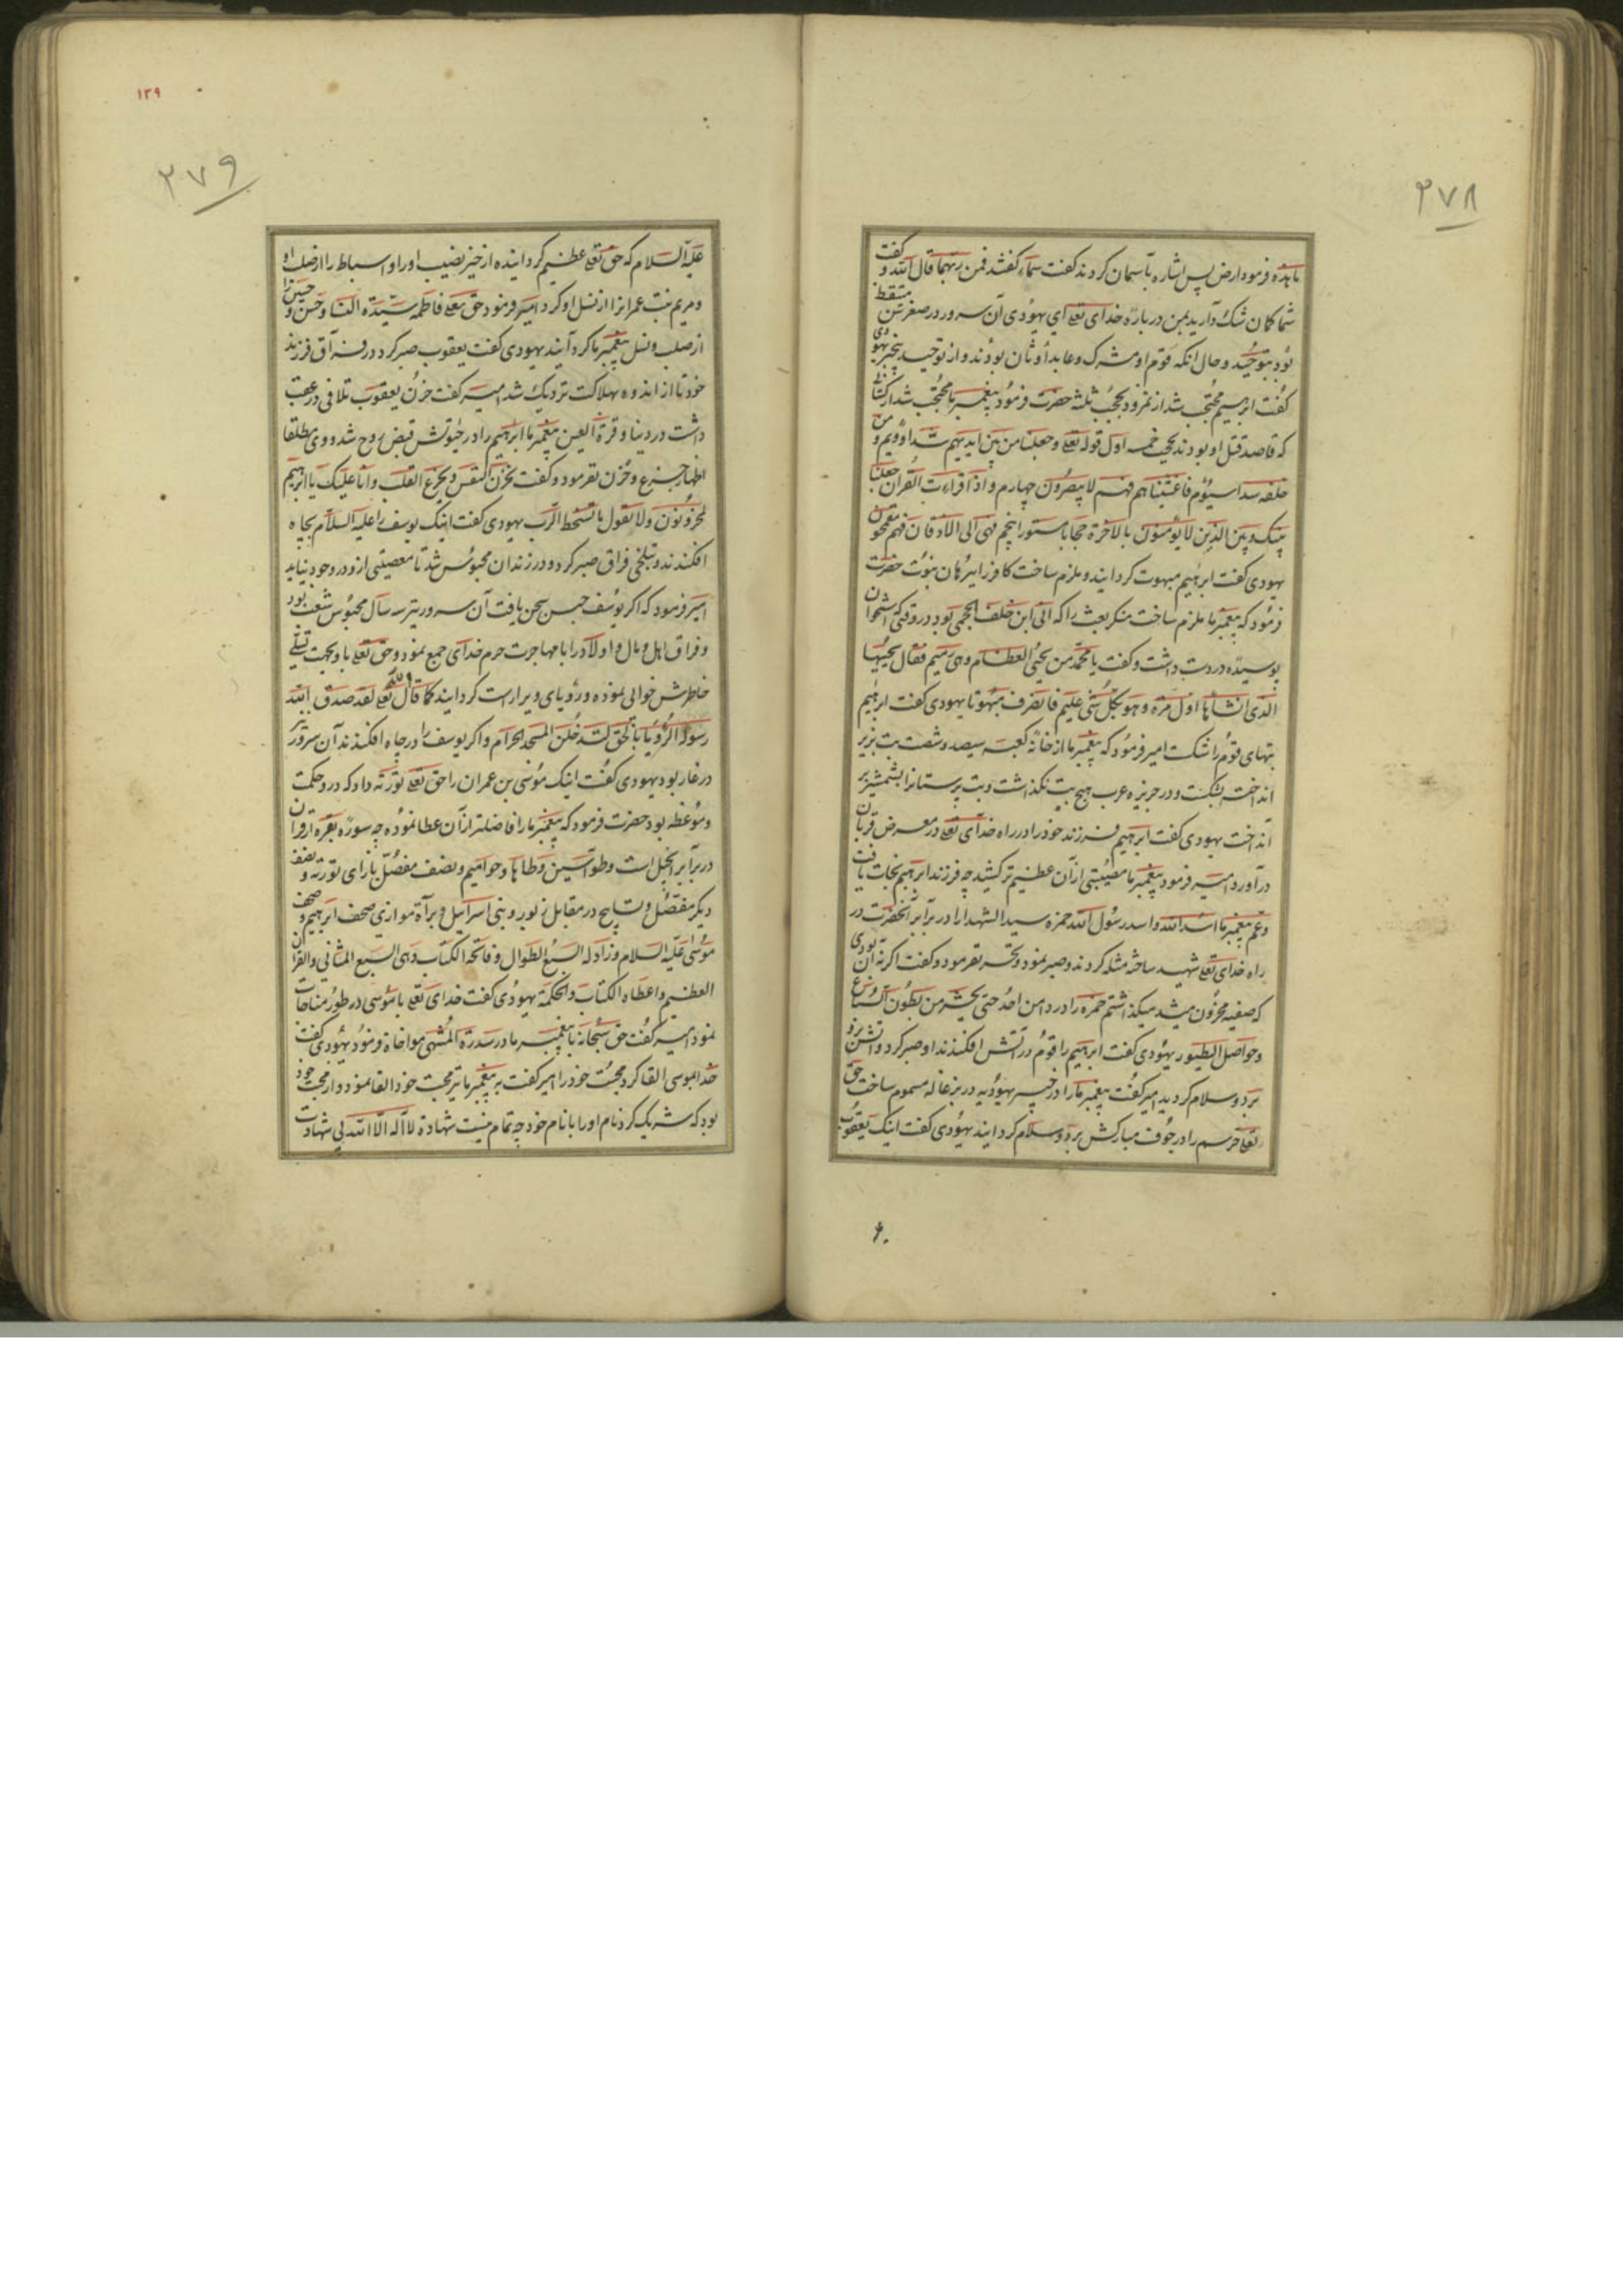 ۲۷۸
ما هذه فرمود ارض پس اشاره بآسمان کردند گفت سماء گفتند فمن ربهما قال الله و گفت
شما گمان شک دارید بمن در باره خدای تعلی ای یهودی آن سرور در صغر سن متیقظ
بود بتوحید و حال انکه قوم او مشرک و عابد اوثان بودند و از توحید بیخبر یهودی
گفت ابرهیم محتجب شد از نمرود بحجب ثلثه حضرت فرمود پیغمبر ما محجب شد از کسانی
که قاصد قتل او بودند بحجب خمسه اول قوله تعلی وجعلنا من بین ایدیهم سدا دویم و من
خلفهم سدا سیوم فاغشیناهم فهم لا یبصرون چهارم و اذا قراءت القران جعلنا
بینک و بین الذین لا یومنون بالاخرة حجابا مستورا پنجم فهی الی الاذقان فهم مقمحون
یهودی گفت ابرهیم مبهوت گردانید و ملزم ساخت کافر را ببرهان نبوت حضرت
فرمود که پیغمبر ما ملزم ساخت منکر بعث را که ابی ابن خلف الجمحی بود در وقتی که استخوان
پوسیده در دست داشت و گفت یا محمد من یحیی العظام وهی رمیم فقال یحییها
الذی انشاها اول مرة وهو بکل شئ علیم فانصرف مبهوتا یهودی گفت ابرهیم
بتهای قوم را شکست امیر فرمود که پیغمبر ما از خانه کعبه سیصد و شصت بت بزیر
انداخته بشکست و در جزیره عرب هیچ بت نگذاشت و بت پرستانرا بشمشیر بر
انداخت یهودی گفت ابرهیم فرزند خود را در راه خدای تعلی در معرض قربان
در آورد امیر فرمود پیغمبر ما مصیبتی از آن عظیم تر کشید چه فرزند ابرهیم نجات یافت
و عم پیغمبر ما اسد الله و اسد رسول الله حمزه سید الشهدا را در برابر آنحضرت در
راه خدای تعلی شهید ساخته مثله کردند و صبر نمود و تحسر نفرمود و گفت اگر نه آن بودی
که صفیه محزون میشد میگذاشتم حمزه را در دامن احد حتی یحشر من بطون السباع
و حواصل الطیور یهودی گفت ابرهیم را قوم در آتش افکندند او صبر کرد و آتش برو
برد و سلام گردید امیر گفت پیغمبر ما را در خیبر یهودیه در بزغاله مسموم ساخت حق
تعلی سم را در جوف مبارکش برد و سلام گردانید یهودی گفت اینک یعقوب
۱۳۹
۲۷۹
علیه السلام که حق تعلی عظیم گردانیده از خیر نصیب او را و اسباط را از صلب او
و مریم بنت عمرانرا از نسل او کرد امیر فرمود حق تعلی فاطمه سیدة النسا و حسن و حسین را
از صلب و نسل پیغمبر ما گردانید یهودی گفت یعقوب صبر کرد در فراق فرزند
خود تا از اندوه بهلاکت نزدیک شد امیر گفت حزن یعقوب تلافی در عقب
داشت در دنیا و قرة العین پیغمبر ما ابرهیم را در حیوتش قبض روح شد و وی مطلقا
اظهار جزع و حزن نفرمود و گفت تحزن النفس و یجزع القلب و انا علیک یا ابرهیم
لمحزونون ولا نقول ما تسخط الرب یهودی گفت اینک یوسف را علیه السلام بچاه
افکندند و بتلخی فراق صبر کرد و در زندان محبوس شد تا معصیتی ازو در وجود نیاید
امیر فرمود که اگر یوسف حبس سجن یافت آن سرور نیز سه سال محبوس شعب بود
و فراق اهل و مال و اولاد را با مهاجرت حرم خدای جمع نمود و حق تعلی با و بجهت تسلی
خاطرش خوابی نموده و رؤیای ویرا راست گردانید کما قال الله تعلی لقد صدق الله
رسوله الرؤیا بالحق لتدخلن المسجد الحرام و اگر یوسف را در چاه افکندند آن سرور نیز
در غار بود یهودی گفت اینک موسی بن عمران را حق تعلی توریة داد که در و حکمت
و موعظه بود حضرت فرمود که پیغمبر ما را فاضلتر از آن عطا نموده چه سوره بقره از قران
در برابر انجیل است و طواسین و طاها و حوامیم و نصف مفصل بازای توریة و نصف
دیگر مفصل و تسابیح در مقابل زبور و بنی اسرائیل و برآة موازی صحف ابرهیم و صحف
موسی علیه السلام و زاد له السبع الطوال و فاتحة الکتاب وهی السبع المثانی والقران
العظیم و اعطاه الکتاب والحکمة یهودی گفت خدای تعلی با موسی در طور مناجات
نمود امیر گفت حق سبحانه با پیغمبر ما در سدرة المنتهی مواخاة فرمود یهودی گفت
خدا بموسی القا کرد محبت خود را امیر گفت به پیغمبر ما نیز محبت خود القا نمود و از محبت خود
بود که شریک کرد نام او را با نام خود چه تمام نیست شهادة لا اله الا الله بی شهادت